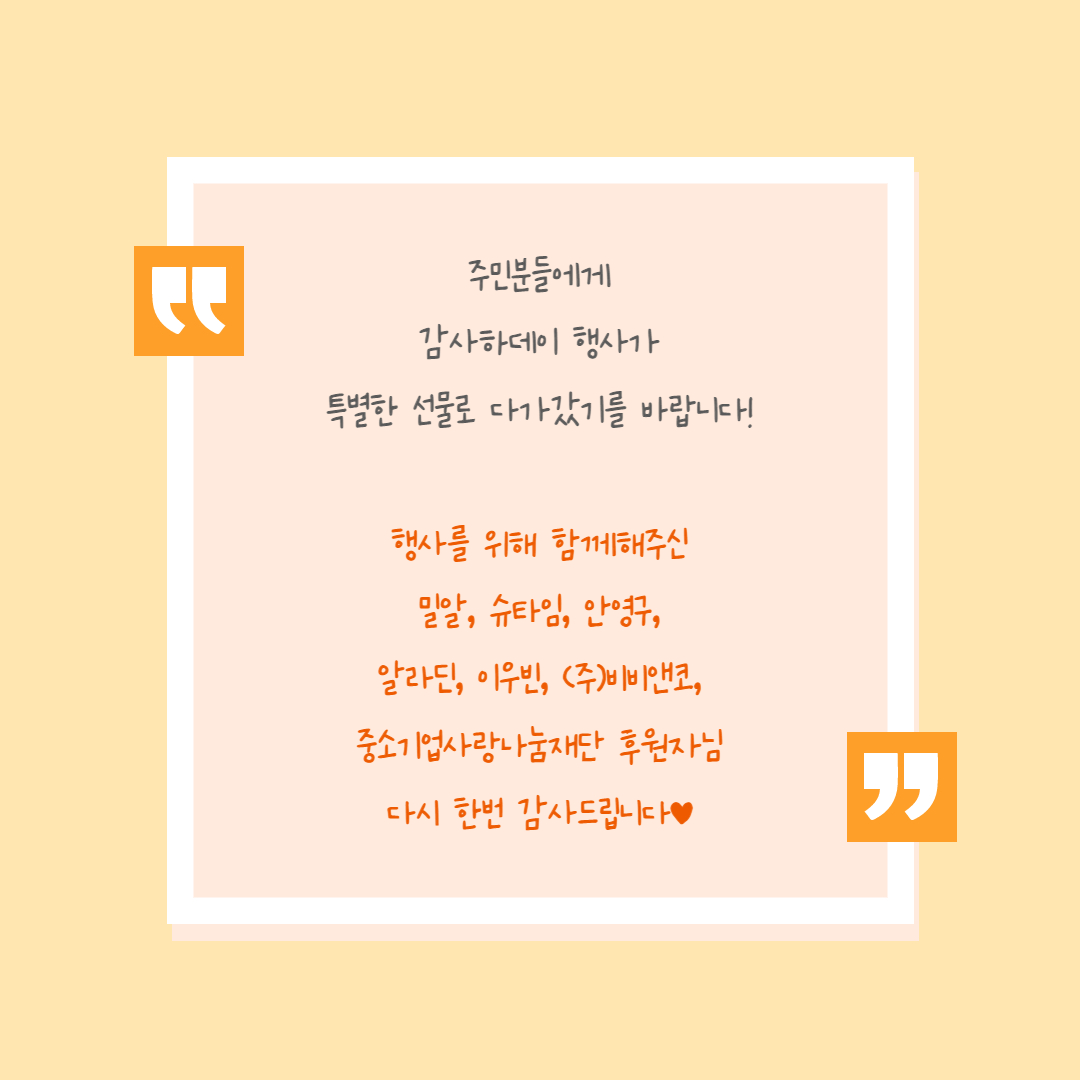 주민분들에게
감사하데이 행사가
특별한 선물로 다가갔기를 바랍니다!
행사를 위해 함께해주신
밀알, 슈타임, 안영구,
알라딘, 이우빈, (주)비비앤코,
중소기업사랑나눔재단 후원자님
다시 한번 감사드립니다♥